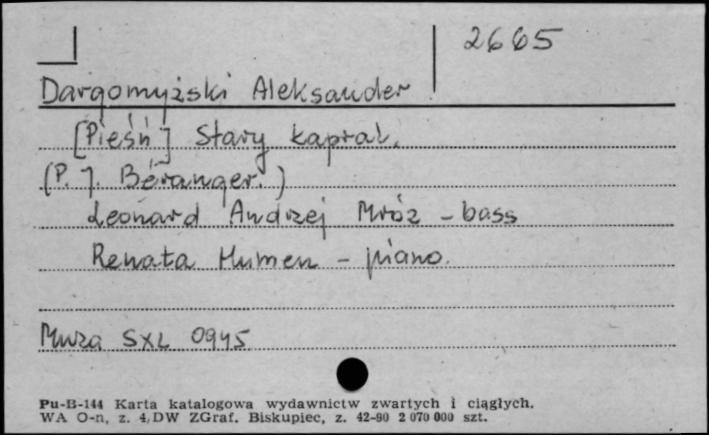 2665
Dargomyżski Aleksander
[Pieśń] Stary kapral.
(P. J. Béranger.)
Leonard Andrzej Mróz - bass
Renata Humen - piano.
Muza SXL 0945
Pu-B-144 Karta katalogowa wydawnictw zwartych i ciągłych.
WA O-n, z. 4, DW ZGraf. Biskupiec, z. 42-90 2 070 000 szt.